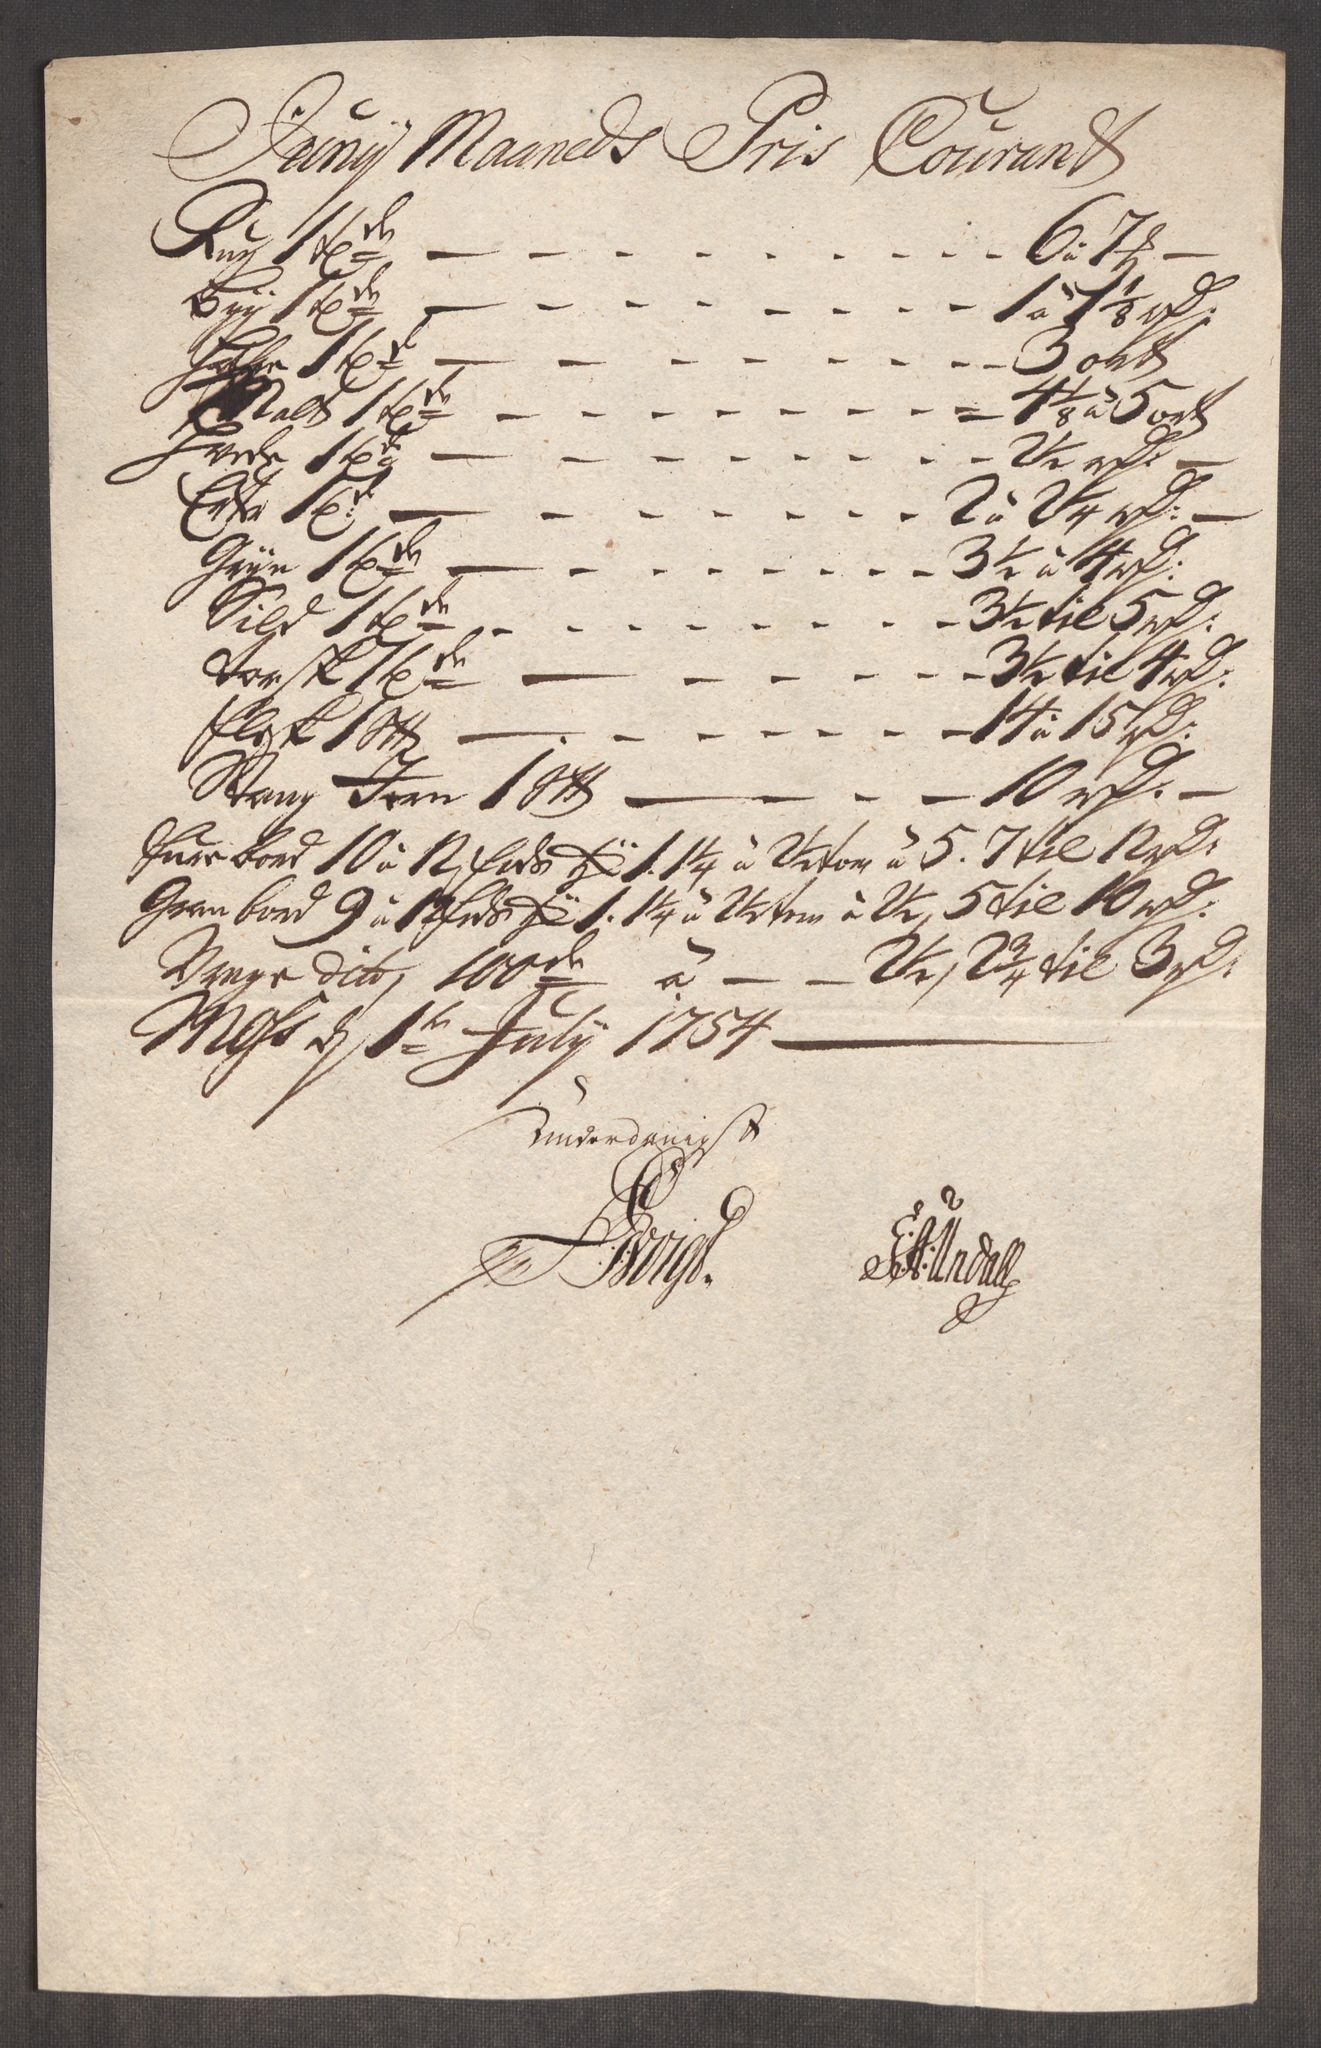 Junÿ Maaneds Pris Courant
Rug 1 tde — 6 à 7
Byg 1 tde — 1 à 1 1/8 rd:
1 td — 3 ort
Malt 1 tde — 4 1/8 à 5 ort
Hvede 1 td — 2 1/2 rd: —
Erter 1 t: — 2 à 2 1/4 rd: —
Gryn 1 tde — 3 1/2 à 4 rd:
Sild 1 tde — 3 1/2 til 5 rd:
torsk 1 tde — 3 1/2 til 4 rd:
flesk 1 — 14 à 15 rd:
Stang Jern 1 — 10 rd: —
furre bord 10 à 12 1. 1 1/4 à 1 1/2 tom à 5. 7 til 12 rd:
Gran bord 9 à 1. 1 1/4 à 1 1/2 tom à 2 1/2, 5 til 10 rd:
Vrage dito, 100de à — — 2 1/2, 2 3/4 til 3 rd:
Moss d 1te July 1754 —
Underdanigst
E: A: Undall